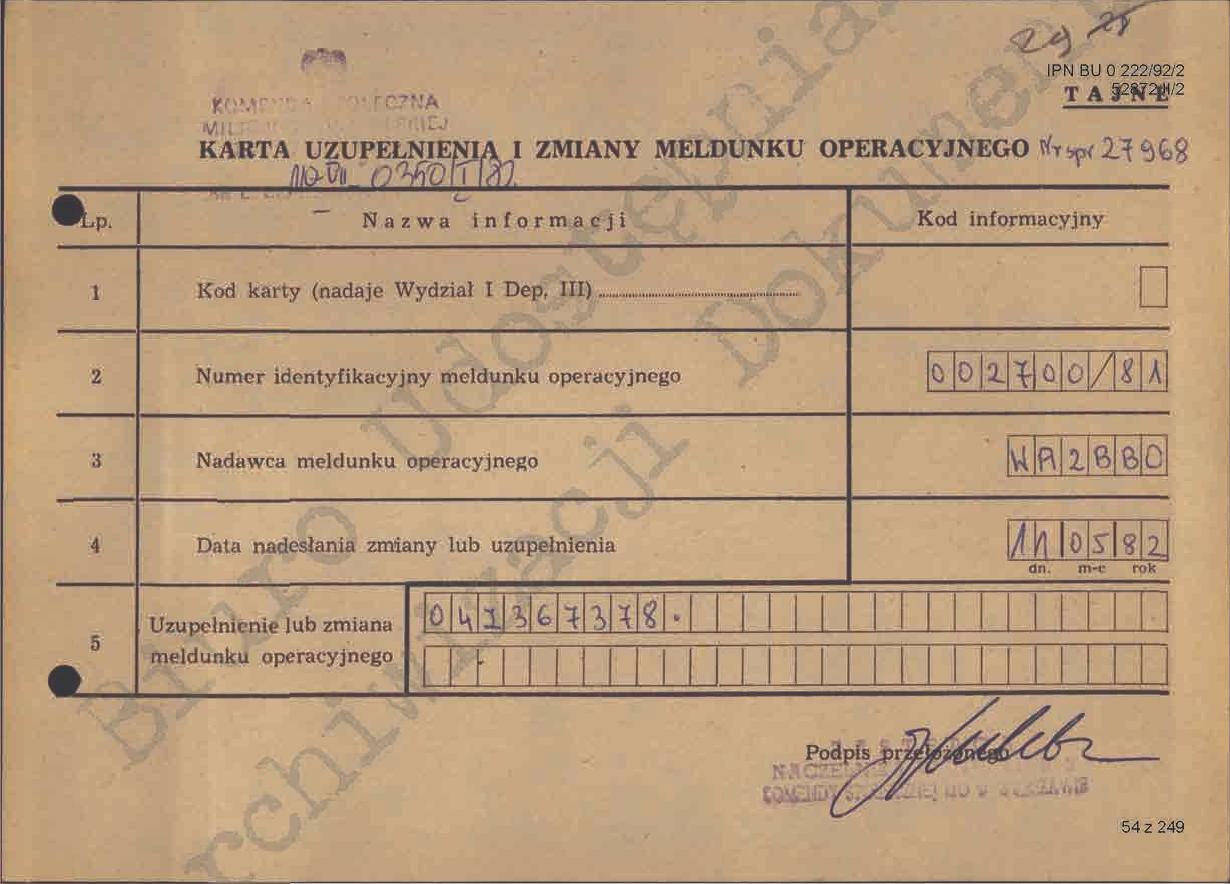 29
IPN BU 0 222/92/2
52872/II/2
TAJNE
KOMENDA STOŁECZNA
MILICJI OBYWATELSKIEJ
KARTA UZUPEŁNIENIA I ZMIANY MELDUNKU OPERACYJNEGO Nr spr 27968
0350/I/82
Lp. Nazwa informacji Kod informacyjny
1 Kod karty (nadaje Wydział I Dep. III)
2 Numer identyfikacyjny meldunku operacyjnego 002700/81
3 Nadawca meldunku operacyjnego WA2BB0
4 Data nadesłania zmiany lub uzupełnienia 110582
dn. m-c rok
5 Uzupełnienie lub zmiana meldunku operacyjnego 041367378.
Podpis przełożonego
54 z 249
Biuro Udostępniania
Archiwizacji Dokumentów